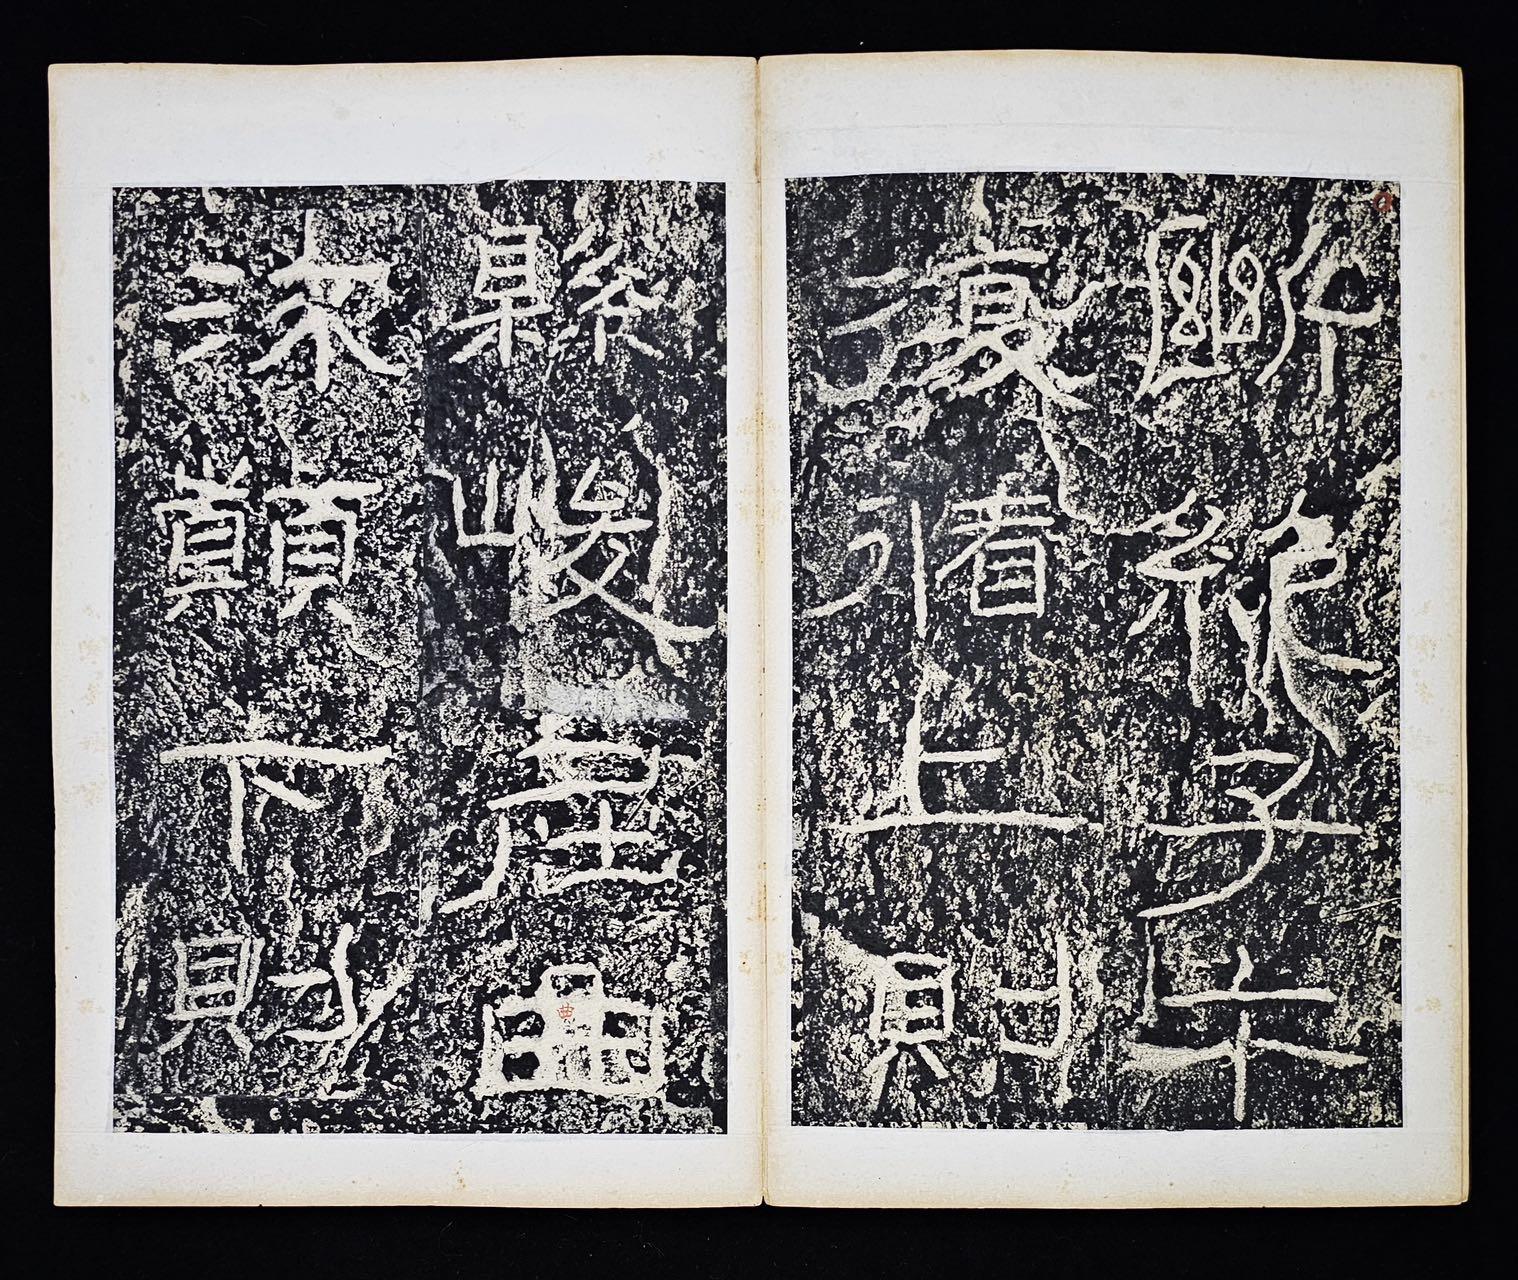 斷絶子午
復循上則
縣峻屈曲
流顛下則